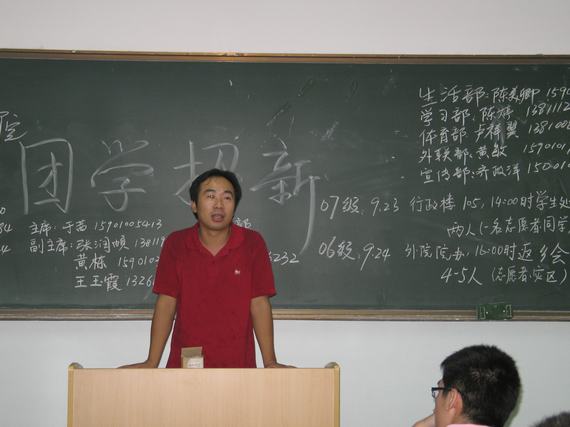 团学招新
主席:于芸 15901005413
副主席:张润顺 138119
黄栋 1590102 5232
王玉霞 1326
生活部:陈美卿 1590
学习部:陈婷 1381112
体育部:卢辉斐 1381008
外联部:黄敏 1590101
宣传部:乔政洋 1500101
07级:9.23 行政楼 105, 14:00时学生处
两人(一名志愿者同学
06级:9.24 外院院办,16:00时返乡会
4-5人(志愿者:灾区)